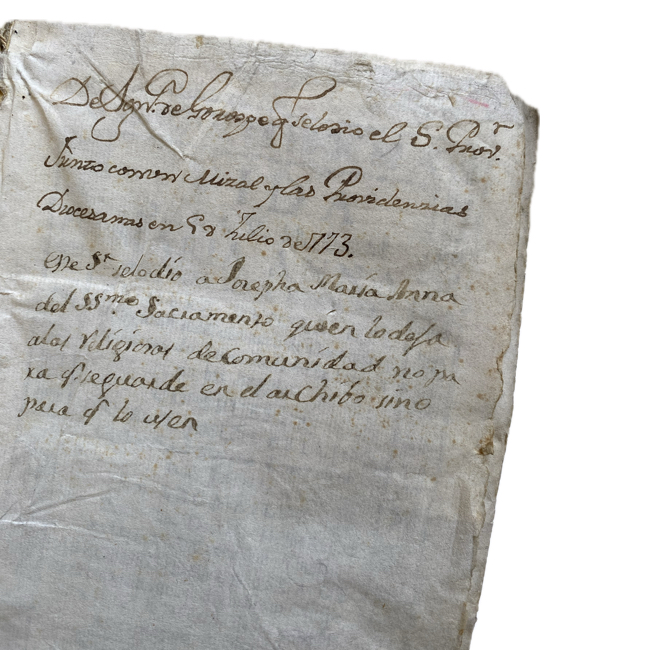 De Agn.ⁿ de Gorospe q se lo dio el S. Prov.ʳ
Junto con un Mizal y las Providenzias
Diocesanas en 5 de Julio de 1773.
este Sʳ se lo dio a Josepha María Anna
del SSmo. Sacramento quien lo deja
a las religiosas de comunidad no pa
ra q se guarde en el archibo sino
para q lo usen